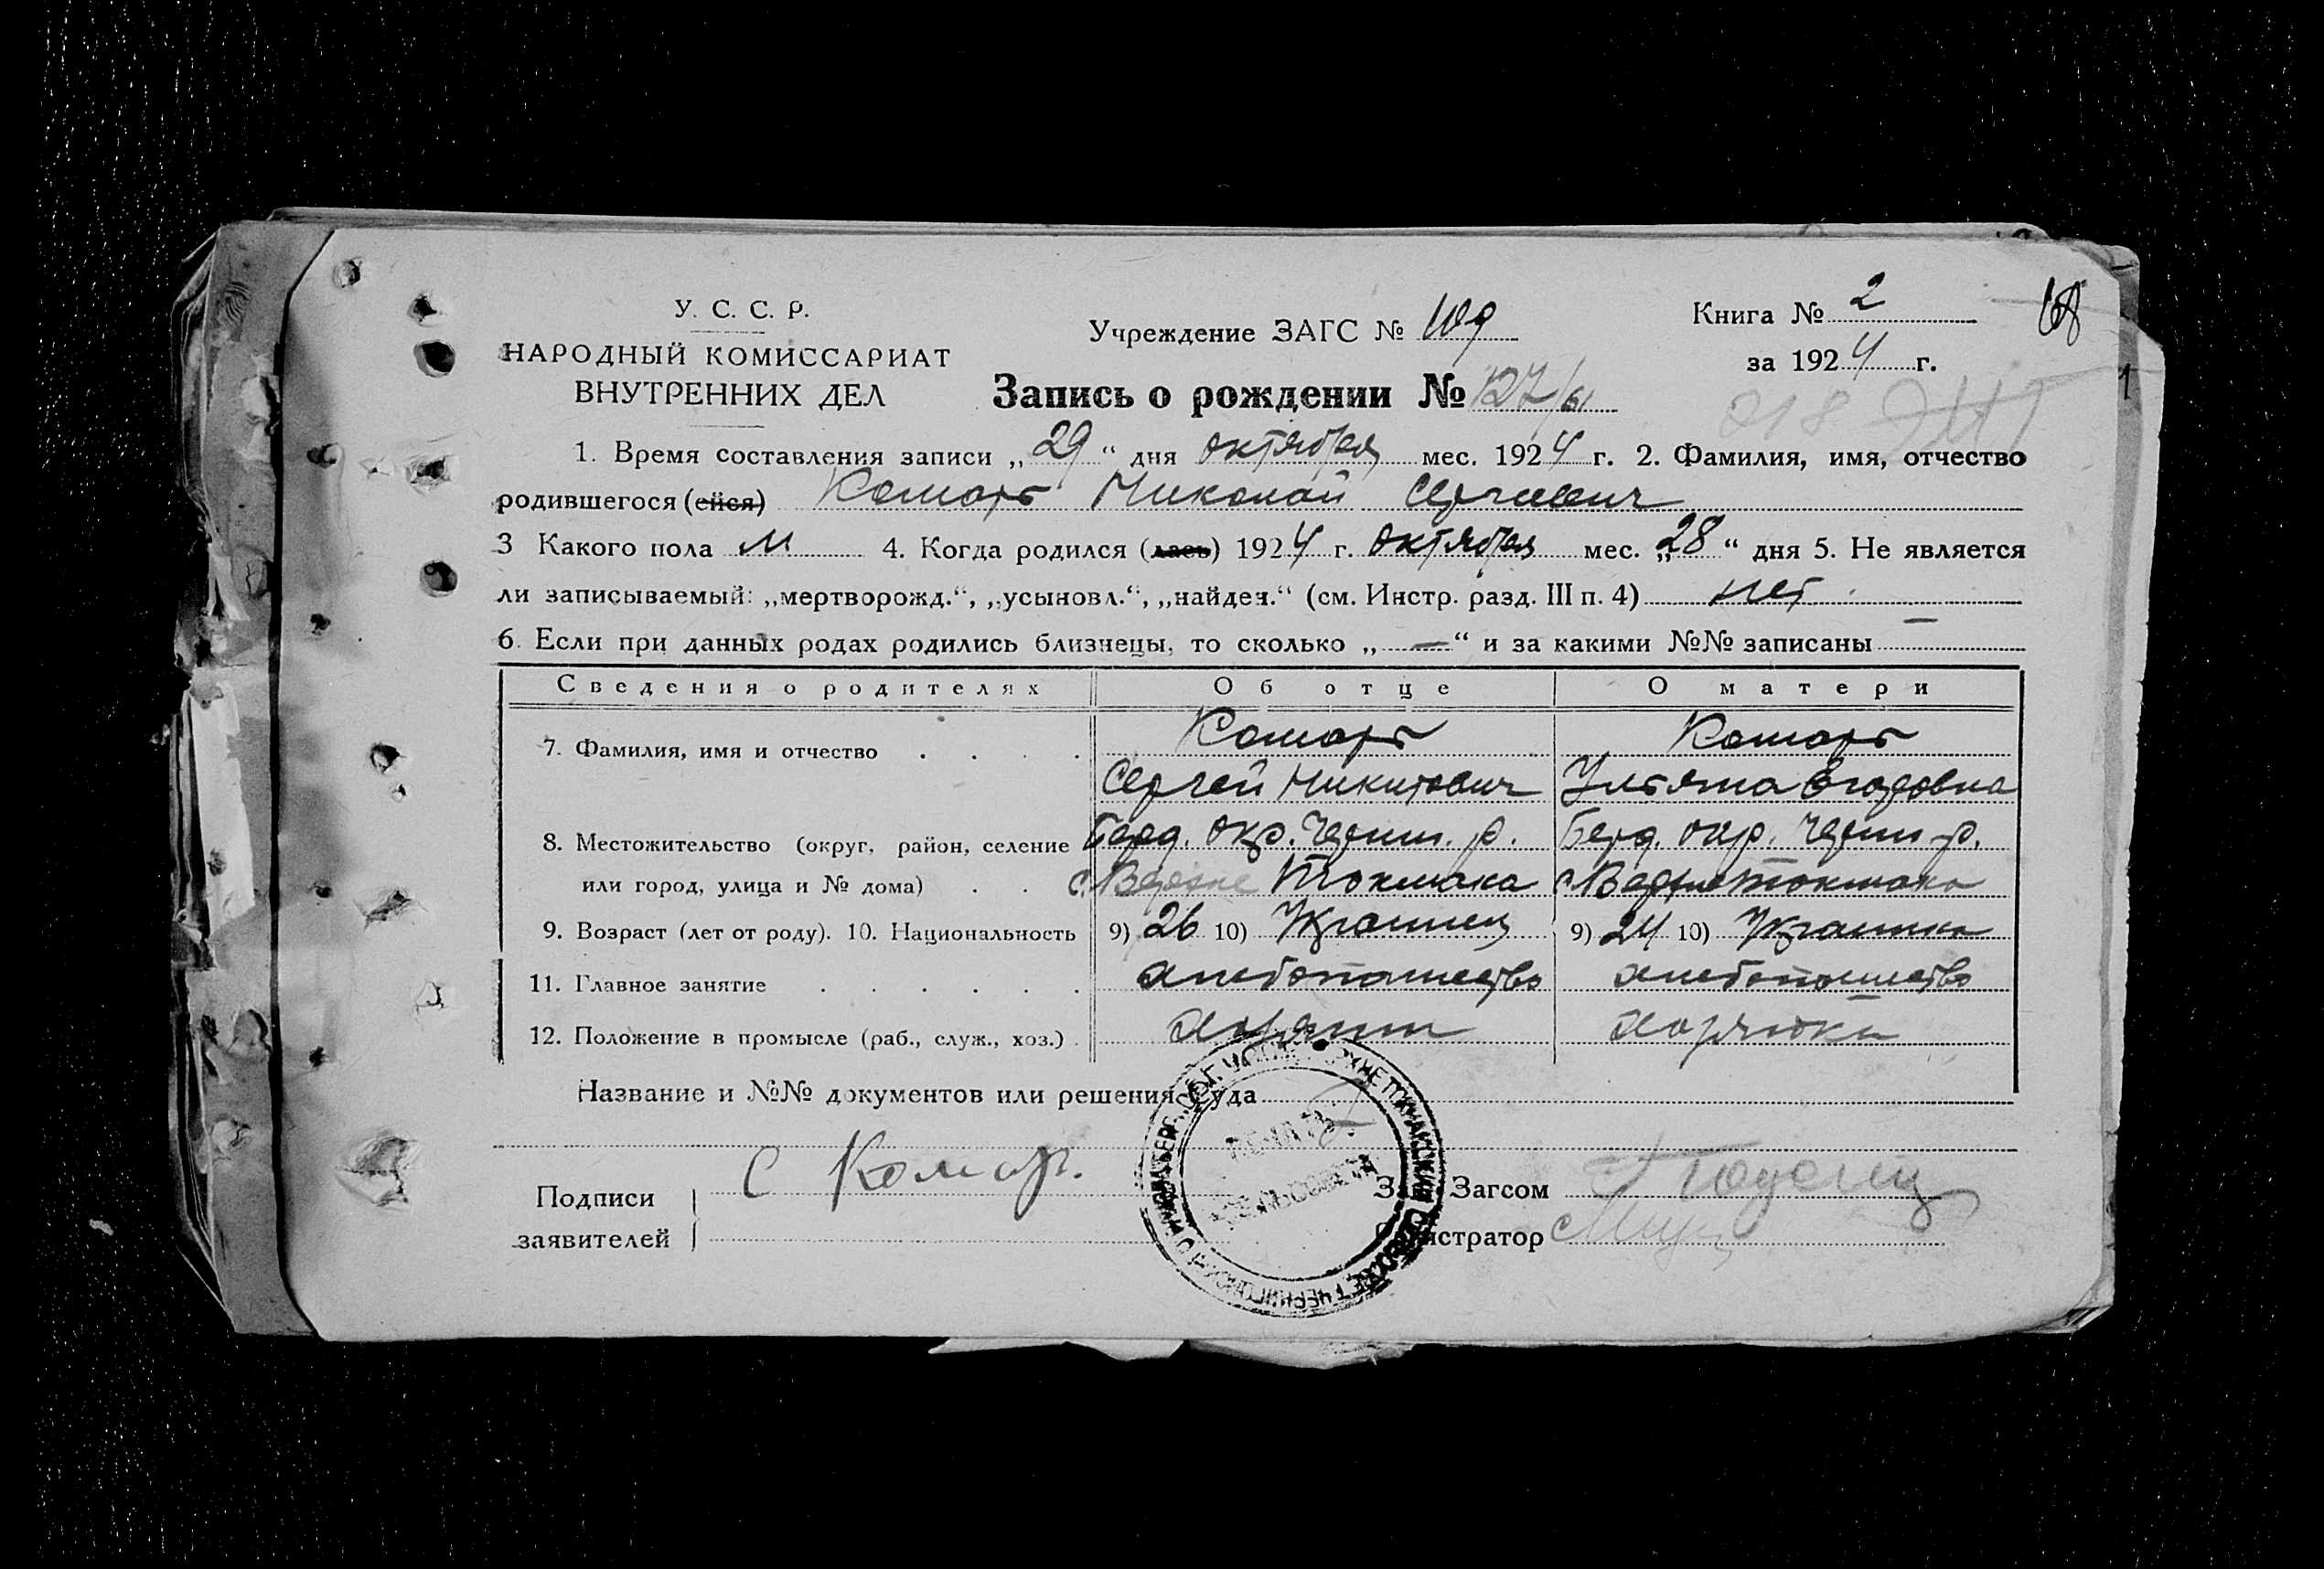 У. С. С. Р.
НАРОДНЫЙ КОМИССАРИАТ
ВНУТРЕННИХ ДЕЛ
Учреждение ЗАГС № 109
Книга № 2
за 1924 г.
68
Запись о рождении № 127/61
1. Время составления записи „29“ дня октября мес. 1924 г. 2. Фамилия, имя, отчество
родившегося (ейся) Комарь Николай Сергиевич
3 Какого пола М 4. Когда родился (лась) 1924 г. октября мес. „28“ дня 5. Не является
ли записываемый: „мертворожд.“, „усыновл.“, „найден.“ (см. Инстр. разд. III п. 4) нет
6. Если при данных родах родились близнецы, то сколько „—“ и за какими №№ записаны —
Сведения о родителях Об отце О матери
7. Фамилия, имя и отчество Комарь Комарь
Сергей Никитович Ульяна Егоровна
8. Местожительство (округ, район, селение Берд. окр. Черниг. р. Берд. окр. Черниг. р.
или город, улица и № дома) с. Верхне Токмака с Верхнетокмака
9. Возраст (лет от роду). 10. Национальность 9) 26 10) Украинец 9) 24 10) Украинка
11. Главное занятие хлебопашество хлебопашество
12. Положение в промысле (раб., служ., хоз.)
Название и №№ документов или решения суда
Подписи заявителей С Комарь
Зав. Загсом
Регистратор